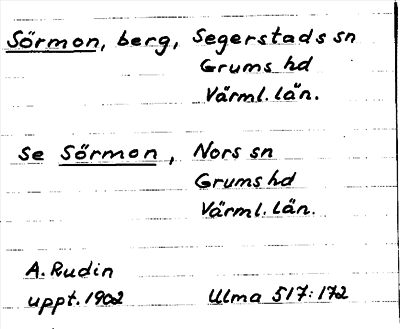 Sörmon, berg, Segerstads sn
Grums hd
Värml. län.
se Sörmon, Nors sn
Grums hd
Värml. län.
A. Rudin
uppt. 1902 Ulma 517:172